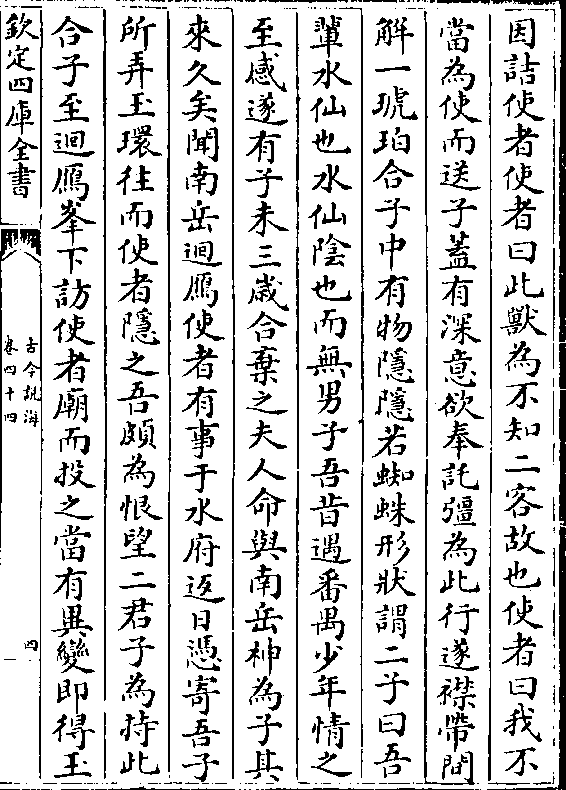 因詰使者使者曰此獸為不知二客故也使者曰我不
當為使而送子蓋有深意欲奉託彊為此行遂襟帶間
解一琥珀合子中有物隱隱若蜘蛛形狀謂二子曰吾
輩水仙也水仙陰也而無男子吾昔遇番禺少年情之
至感遂有子未三歲合棄之夫人命與南岳神為子其
來久矣聞南岳迴鴈使者有事于水府返日憑寄吾子
所弄玉環往而使者隱之吾頗為恨望二君子為持此
合子至迴鴈峯下訪使者廟而投之當有異變即得玉
欽定四庫全書
古今說海
卷四十四
四